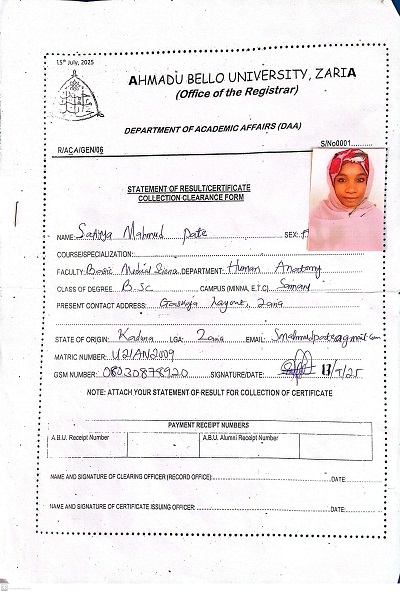 15th July, 2025
AHMADU BELLO UNIVERSITY, ZARIA
(Office of the Registrar)
DEPARTMENT OF ACADEMIC AFFAIRS (DAA)
R/ACA/GEN/06 S/No0001..........
STATEMENT OF RESULT/CERTIFICATE
COLLECTION CLEARANCE FORM
NAME: Mahmud Pate SEX: F
COURSE/SPECIALIZATION:
FACULTY: Basic Medical Science DEPARTMENT: Human Anatomy
CLASS OF DEGREE: B.Sc CAMPUS (MINNA, E.T.C): Samaru
PRESENT CONTACT ADDRESS: Gaskiya Layout, Zaria
STATE OF ORIGIN: Kaduna LGA: Zaria EMAIL: Smahmudpate@gmail.com
MATRIC NUMBER: U21AN2009
GSM NUMBER: 08030878920 SIGNATURE/DATE: 13/7/25
NOTE: ATTACH YOUR STATEMENT OF RESULT FOR COLLECTION OF CERTIFICATE
PAYMENT RECEIPT NUMBERS
A.B.U Receipt Number A.B.U. Alumni Receipt Number
NAME AND SIGNATURE OF CLEARING OFFICER (RECORD OFFICE): DATE:
NAME AND SIGNATURE OF CERTIFICATE ISSUING OFFICER: DATE: